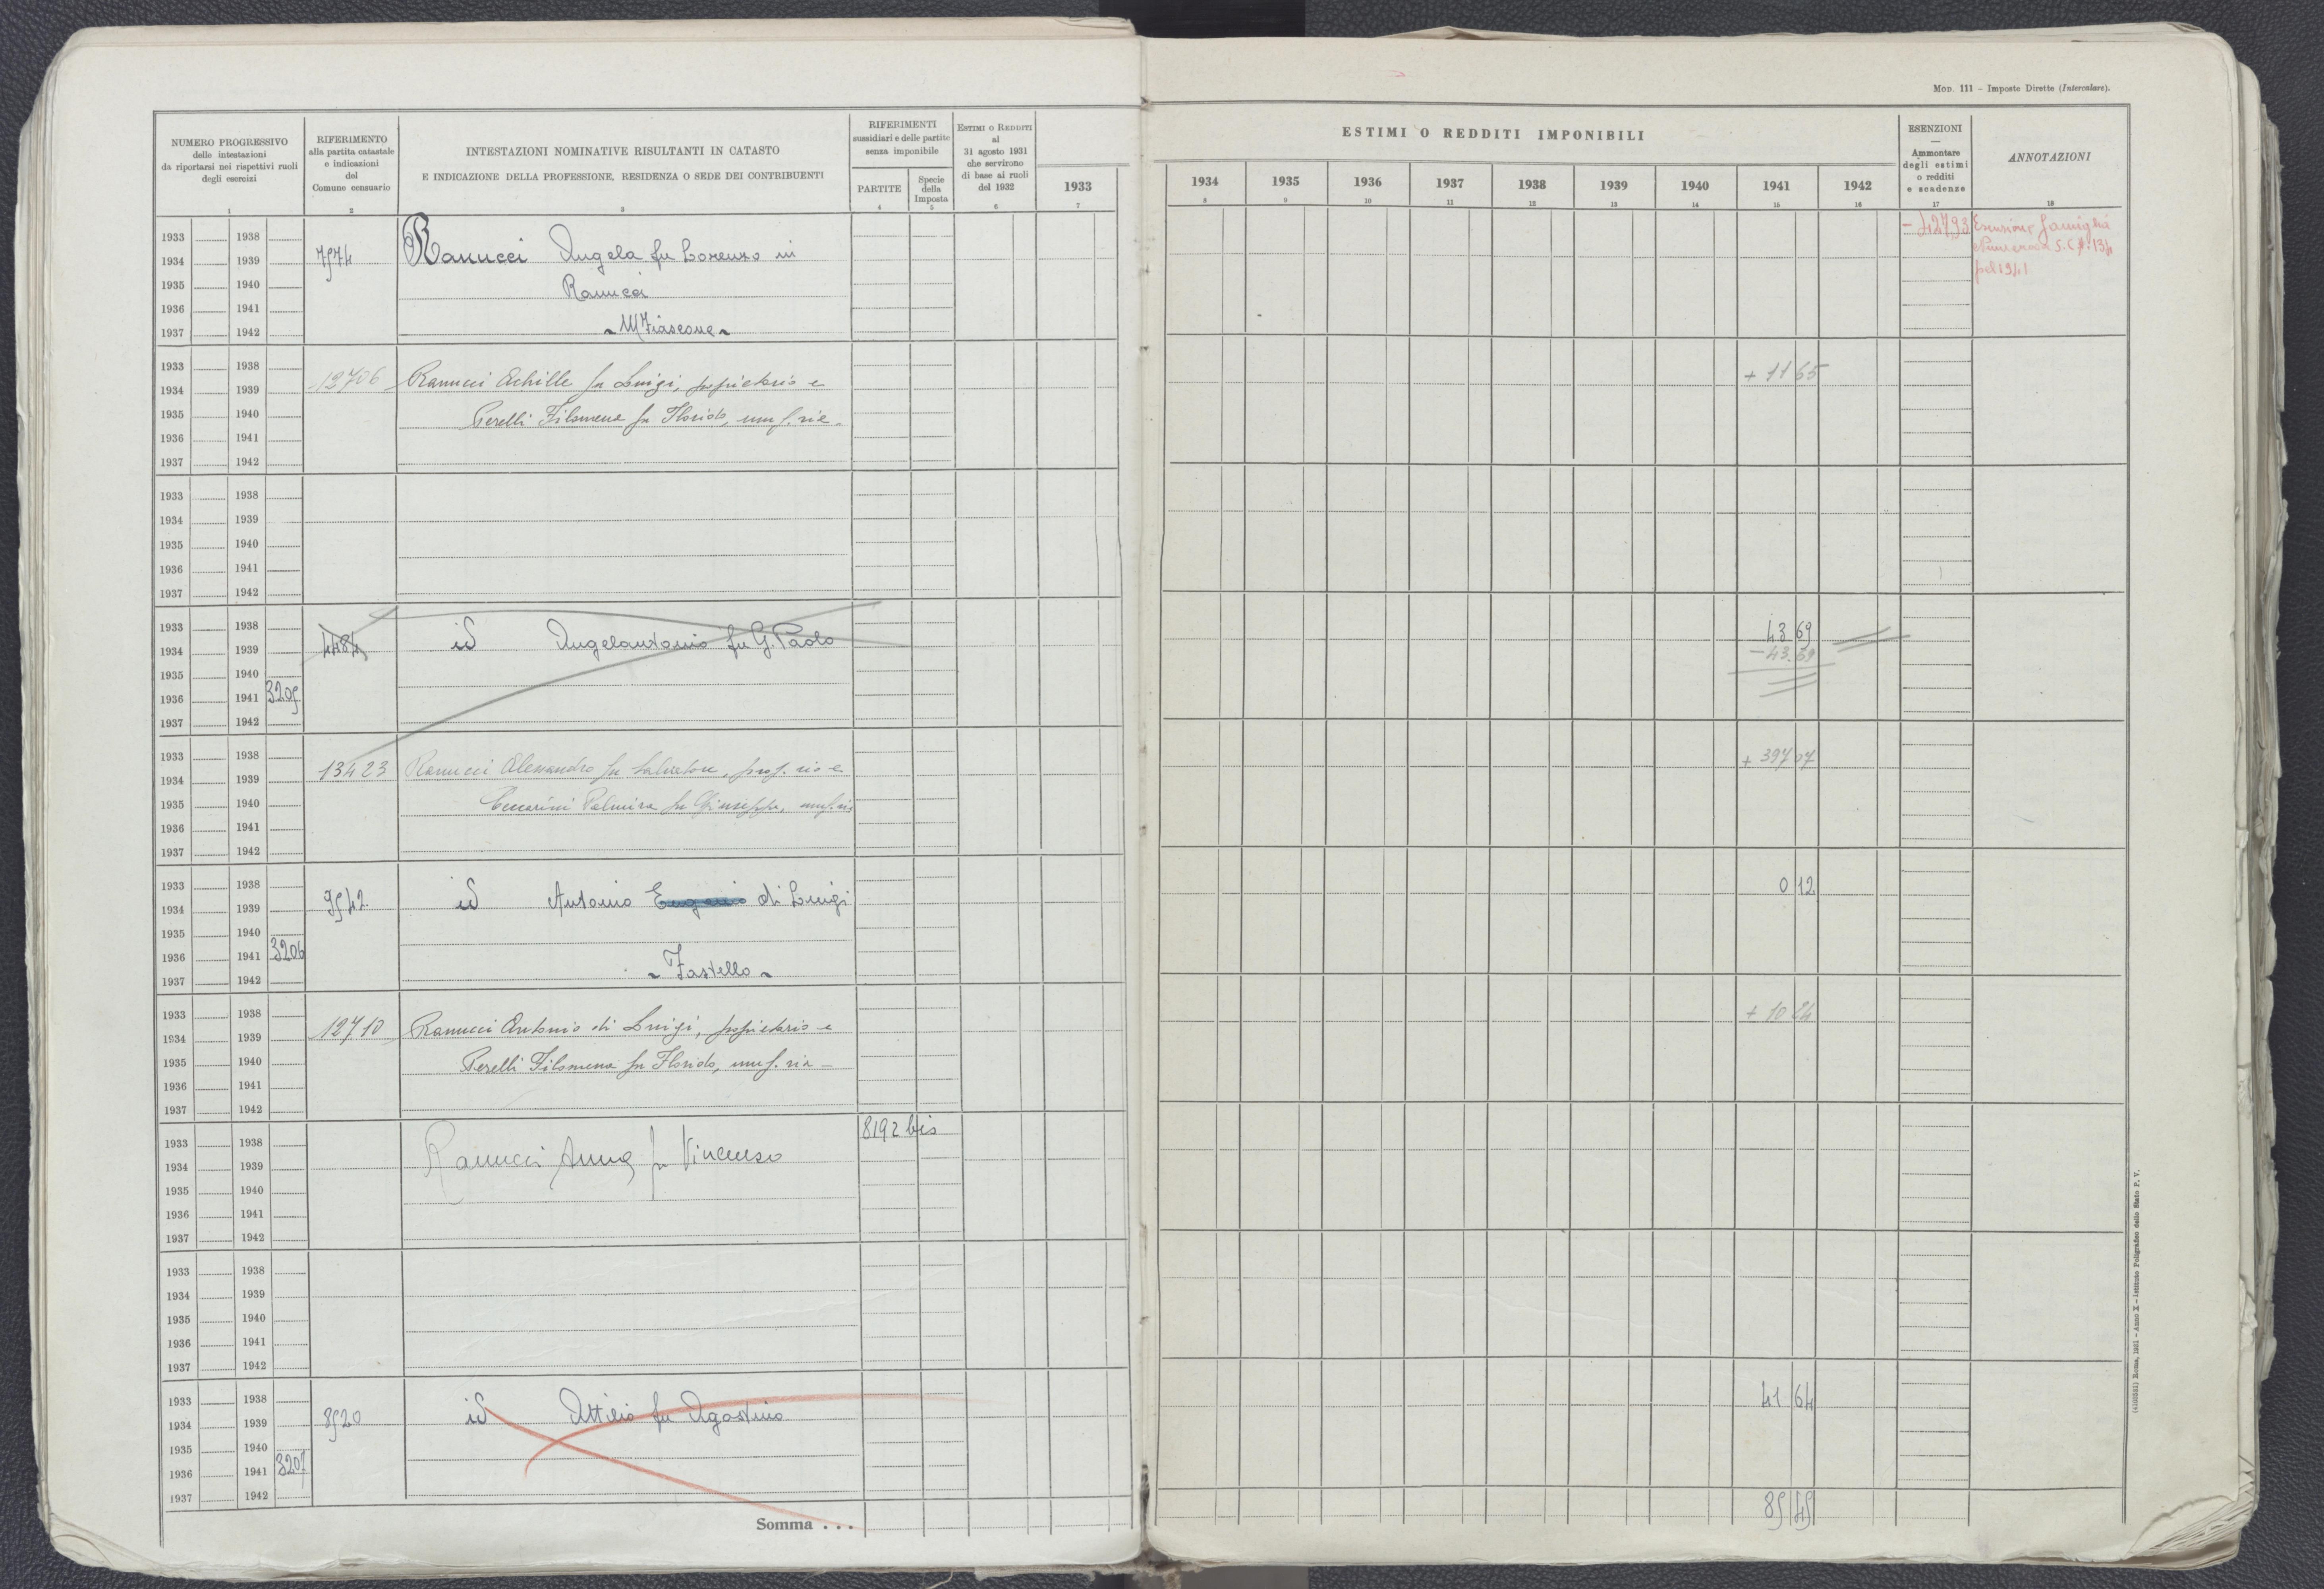 MOD. 111 - Imposte Dirette (Intercalare).
NUMERO PROGRESSIVO
delle intestazioni
da riportarsi nei rispettivi ruoli
degli esercizi
1
RIFERIMENTO
alla partita catastale
e indicazioni
del
Comune censuario
2
INTESTAZIONI NOMINATIVE RISULTANTI IN CATASTO
E INDICAZIONE DELLA PROFESSIONE, RESIDENZA O SEDE DEI CONTRIBUENTI
3
RIFERIMENTI
sussidiari e delle partite
senza imponibile
PARTITE
4
Specie
della
Imposta
5
ESTIMI O REDDITI
al
31 agosto 1931
che servirono
di base ai ruoli
del 1932
6
1933
7
ESTIMI O REDDITI IMPONIBILI
1934 1935 1936 1937 1938 1939 1940 1941 1942
8 9 10 11 12 13 14 15 16
ESENZIONI
—
Ammontare
degli estimi
o redditi
e scadenze
17
ANNOTAZIONI
18
1933 1938
1934 1939 7574 Ranucci Angela fu Lorenzo in
1935 1940 Ranucci
1936 1941
1937 1942 M Fiascone
Esenzione famiglia
1933 1938
1934 1939 12706 Ranucci Achille fu Luigi, proprietario e + 11 65
1935 1940 Perelli Filomena fu Florido, usuf. ria
1936 1941
1937 1942
1933 1938
1934 1939
1935 1940
1936 1941
1937 1942
1933 1938 43 69
1934 1939 4484 id Angelantonio fu G. Paolo
1935 1940
1936 1941 3205
1937 1942
1933 1938 + 397 07
1934 1939 13423 Ranucci Alessandro fu Salvatore, prop. rio e
1935 1940 Ceccarini Palmira fu Giuseppe, usuf. ria
1936 1941
1937 1942
1933 1938 0 12
1934 1939 9542 id Antonio Eugenio di Luigi
1935 1940
1936 1941 3206
1937 1942 Fastello
1933 1938
1934 1939 12710 Ranucci Antonio di Luigi, proprietario e + 10
1935 1940 Perelli Filomena fu Florido, usuf. ria
1936 1941
1937 1942
8192 bis
1933 1938
1934 1939 Ranucci Anna fu Vincenzo
1935 1940
1936 1941
1937 1942
1933 1938
1934 1939
1935 1940
1936 1941
1937 1942
1933 1938 41 64
1934 1939 8520 id Attilio fu Agostino
1935 1940
1936 1941 3207
1937 1942
Somma . . . 85 45
Roma, 1931 - Anno X - Istituto Poligrafico dello Stato P. V.